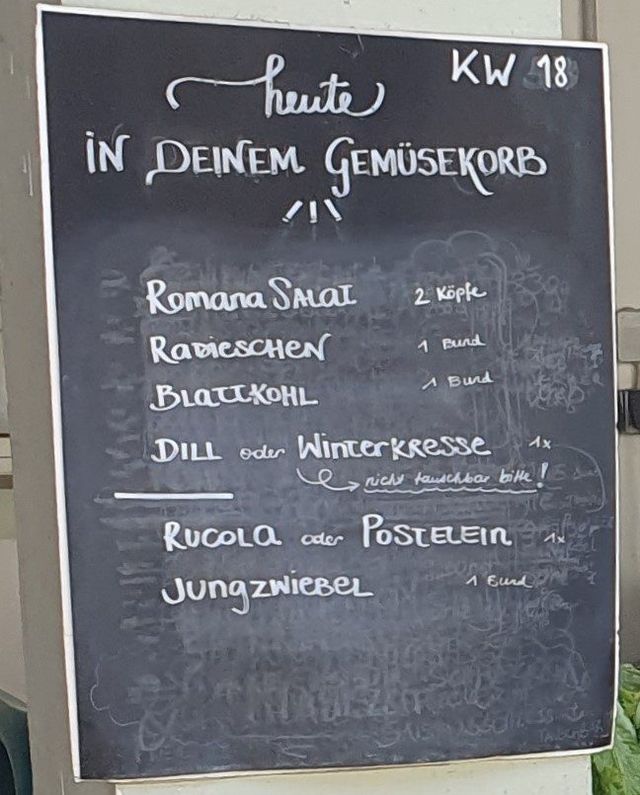 KW 18
heute
IN DEINEM GEMÜSEKORB
Romana SALAT 2 Köpfe
RADIESCHEN 1 Bund
BLATTKOHL 1 Bund
DILL oder WINTERKRESSE 1x
nicht tauschbar bitte!
RUCOLA oder POSTELEIN 1x
JUNGZWIEBEL 1 Bund